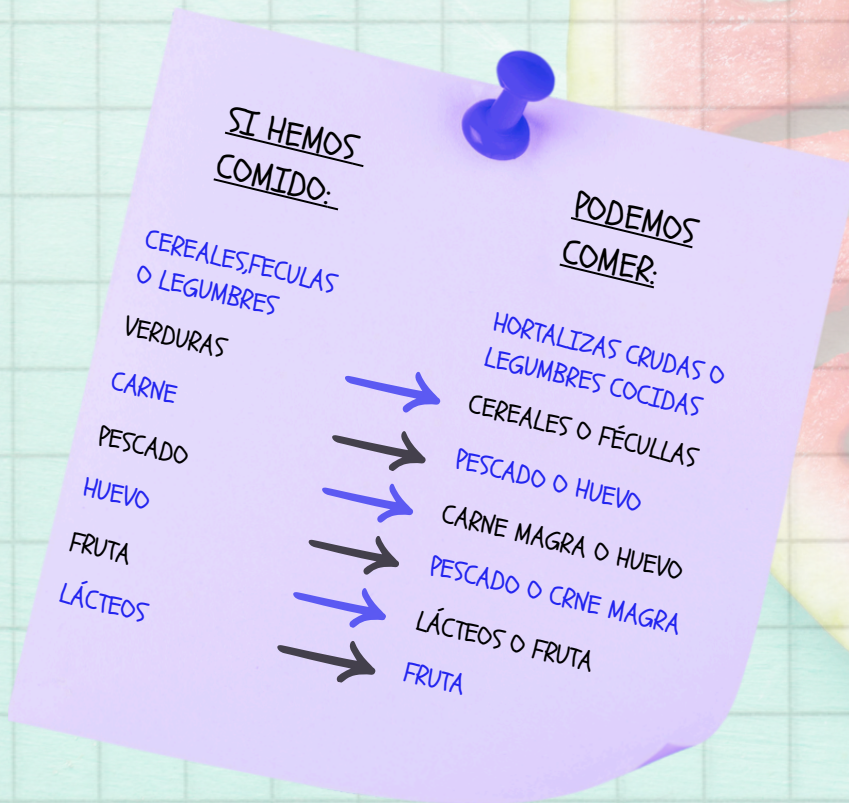 SI HEMOS
COMIDO:
CEREALES,FECULAS
O LEGUMBRES
VERDURAS
CARNE
PESCADO
HUEVO
FRUTA
LÁCTEOS
PODEMOS
COMER:
HORTALIZAS CRUDAS O
LEGUMBRES COCIDAS
CEREALES O FÉCULLAS
PESCADO O HUEVO
CARNE MAGRA O HUEVO
PESCADO O CRNE MAGRA
LÁCTEOS O FRUTA
FRUTA